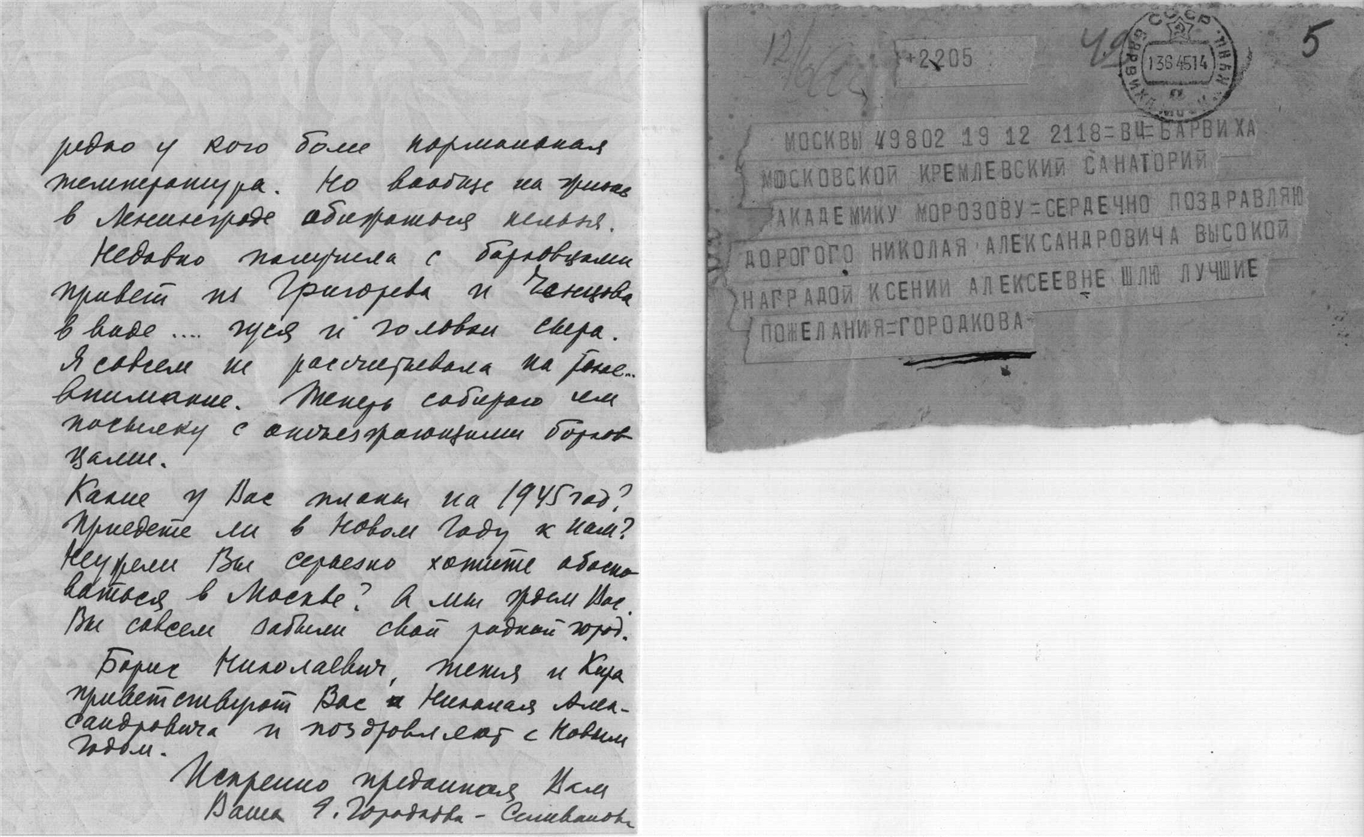 редко у кого более нормальная
температура. Но вообще на жизнь
в Ленинграде обижаться нельзя.
Недавно получила с борковцами
привет из Григорева и Ченцова
в виде .... гуся и головки сыра.
Я совсем не рассчитывала на такое
внимание. Теперь собираю им
посылку с отъезжающими борков-
цами.
Какие у Вас планы на 1945 год?
Приедете ли в Новом Году к нам?
Неужели Вы серьезно хотите обосно-
ваться в Москве? А мы ждем Вас.
Вы совсем забыли свой родной город.
Борис Николаевич, Женя и Кира
приветствуют Вас и Николая Алек-
сандровича и поздравляют с Новым
годом.
Искренно преданная Вам
Ваша Я. Городкова - Селиванова
12/
+2205
49
5
СССР
БАРВИХА
1364514
МОСКВЫ 49802 19 12 2118=ВЧ=БАРВИХА
МОСКОВСКОЙ КРЕМЛЕВСКИЙ САНАТОРИЙ
АКАДЕМИКУ МОРОЗОВУ=СЕРДЕЧНО ПОЗДРАВЛЯЮ
ДОРОГОГО НИКОЛАЯ АЛЕКСАНДРОВИЧА ВЫСОКОЙ
НАГРАДОЙ КСЕНИИ АЛЕКСЕЕВНЕ ШЛЮ ЛУЧШИЕ
ПОЖЕЛАНИЯ=ГОРОДКОВА-